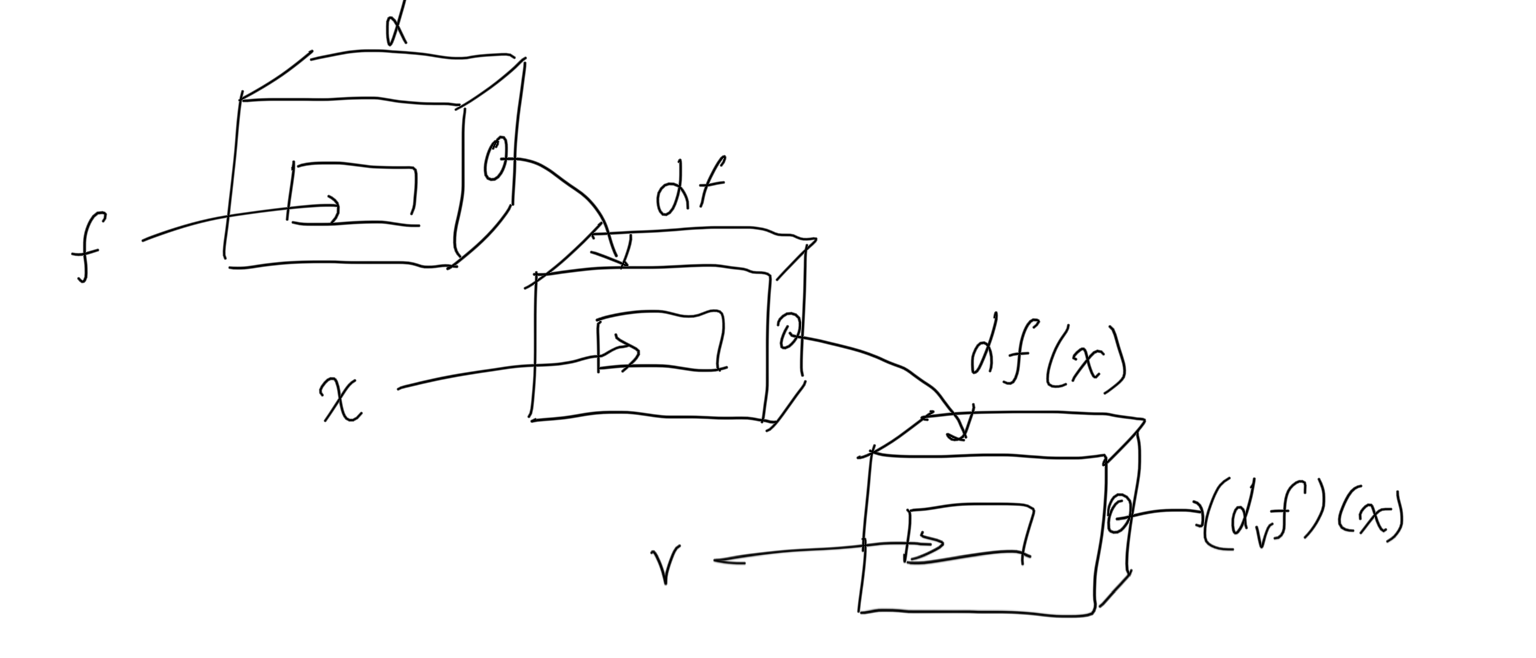 d
f
df
x
df(x)
v
(dᵥf)(x)